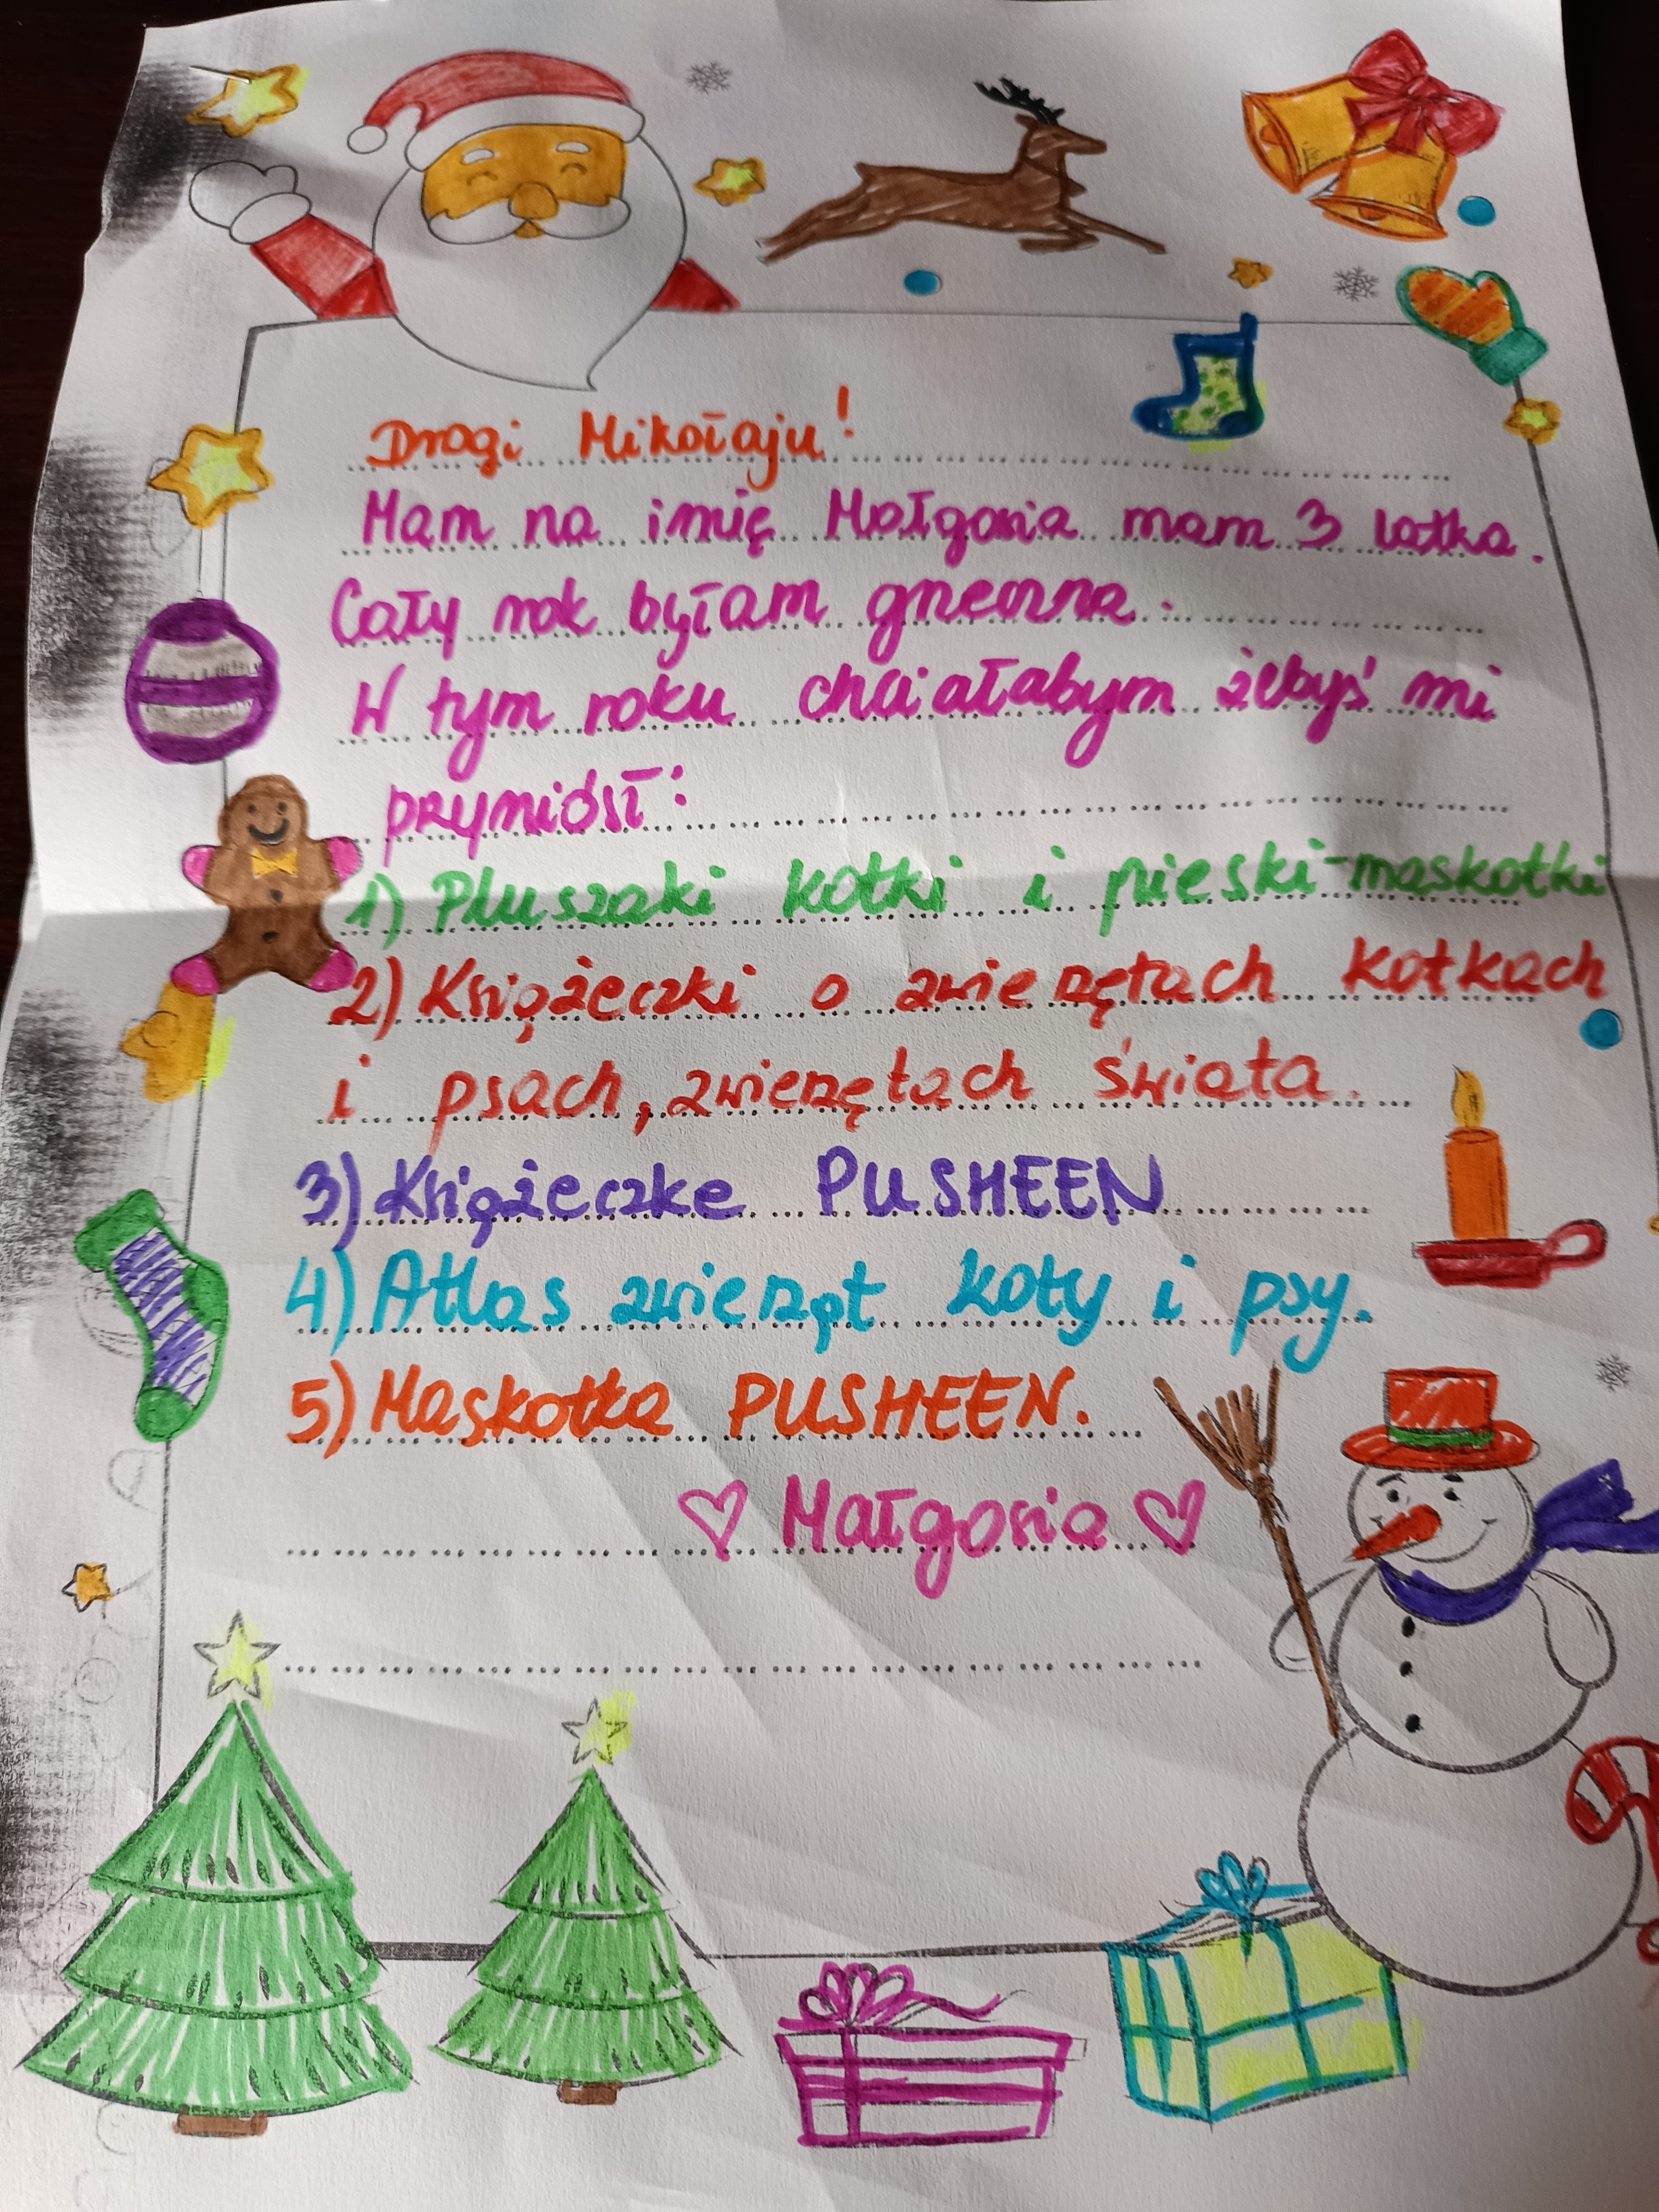 Drogi Mikołaju!
Mam na imię Małgosia mam 3 latka.
Cały rok byłam grzeczna.
W tym roku chciałabym żebyś mi
przyniósł:
1) Pluszaki kotki i pieski-maskotki
2) Książeczki o zwierzętach kotkach
i psach, zwierzętach świata.
3) Książeczke PUSHEEN
4) Atlas zwierząt koty i psy.
5) Maskotka PUSHEEN.
♡ Małgosia ♡